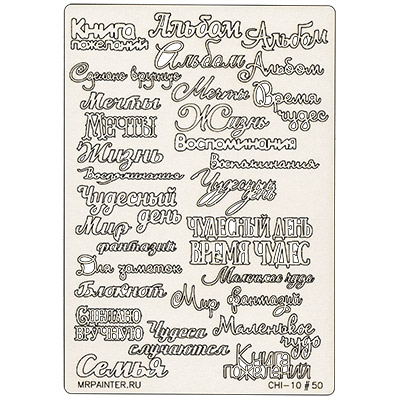 Книга
пожеланий
Альбом
Альбом
Альбом
Альбом
Сделано вручную
Мечты
Мечты
Время
чудес
Мечты
Жизнь
Жизнь
Воспоминания
Воспоминания
Воспоминания
Чудесный
день
Чудесный
день
Мир
фантазий
ЧУДЕСНЫЙ ДЕНЬ
ВРЕМЯ ЧУДЕС
Для заметок
Маленькое чудо
Блокнот
Мир фантазий
Сделано
вручную
Чудеса
случаются
Маленькое
чудо
Семья
Книга
пожеланий
MRPAINTER.RU
CHI-10 #50